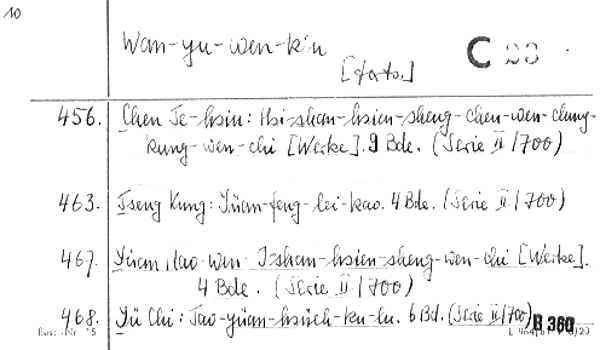 10
Wan-yu-wen-k'u
[Forts.]
C
456. Chen Te-hsiu: Hsi-shan-hsien-sheng-chen-wen-chung-
kung-wen-chi [Werke]. 9 Bde. (Serie II/700)
463. Tseng Kung: Yüan-feng-lei-kao. 4 Bde. (Serie II/700)
467. Yüan Hao-wen: I-shan-hsien-sheng-wen-chi [Werke].
4 Bde. (Serie II/700)
468. Yü Chi: Tao-yüan-hsüeh-ku-lu. 6 Bd. (Serie II/700) B 360
Best.-Nr.